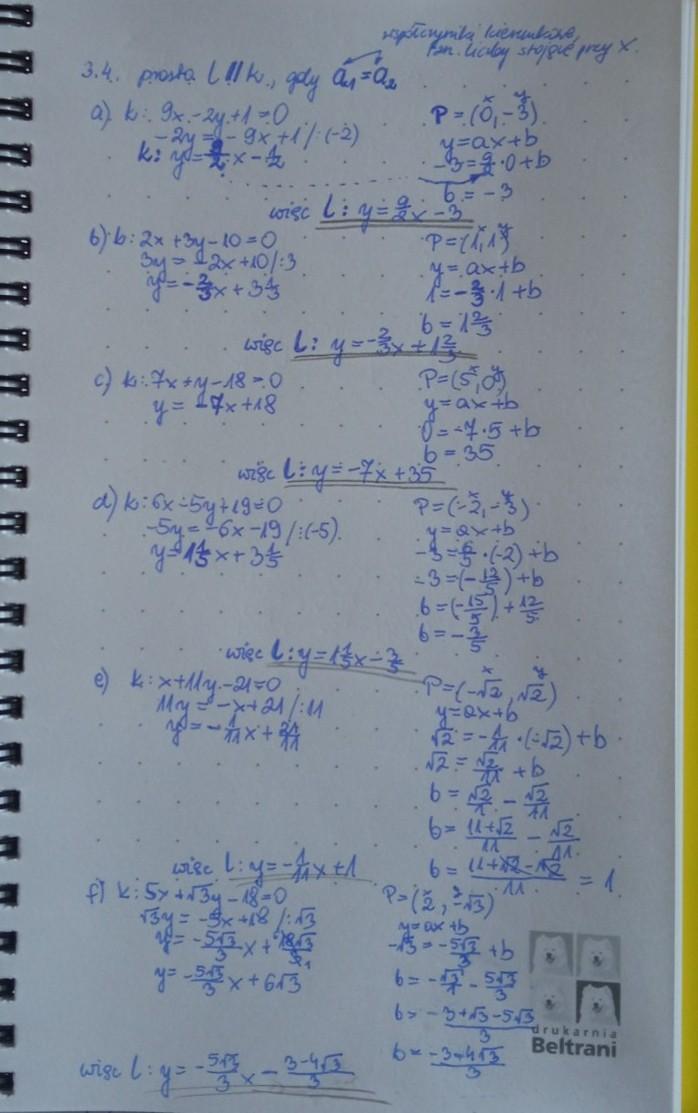 współczynniki kierunkowe,
tzn. liczby stojące przy x.
3.4. prosta l || k, gdy a₁ = a₂
a) k: 9x - 2y + 1 = 0
-2y = -9x + 1 /:(-2)
k: y = 9/2 x - 1/2
P = (0, -3)
x y
y = ax + b
-3 = 9/2 · 0 + b
b = -3
więc l: y = 9/2 x - 3
b) k: 2x + 3y - 10 = 0
3y = -2x + 10 /:3
y = -2/3 x + 3 1/3
P = (1, 1)
x y
y = ax + b
1 = -2/3 · 1 + b
b = 1 2/3
więc l: y = -2/3 x + 1 2/3
c) k: 7x + y - 18 = 0
y = -7x + 18
P = (5, 0)
x y
y = ax + b
0 = -7 · 5 + b
b = 35
więc l: y = -7x + 35
d) k: 6x - 5y + 19 = 0
-5y = -6x - 19 /:(-5)
y = 1 1/5 x + 3 4/5
P = (-2, -3)
x y
y = ax + b
-3 = 6/5 · (-2) + b
-3 = (-12/5) + b
b = (-15/5) + 12/5
b = -3/5
więc l: y = 1 1/5 x - 3/5
e) k: x + 11y - 21 = 0
11y = -x + 21 /:11
y = -1/11 x + 21/11
P = (-√2, √2)
x y
y = ax + b
√2 = -1/11 · (-√2) + b
√2 = √2/11 + b
b = √2/1 - √2/11
b = 11+√2/11 - √2/11
b = 11+√2-√2/11 = 1
więc l: y = -1/11 x + 1
f) k: 5x + √3y - 18 = 0
√3y = -5x + 18 /:√3
y = -5√3/3 x + 18√3/3
y = -5√3/3 x + 6√3
P = (2, -√3)
x y
y = ax + b
-√3 = -5√3/3 + b
b = -√3/1 - 5√3/3
b = -3+√3-5√3/3
b = -3-4√3/3
więc l: y = -5√3/3 x - 3-4√3/3
drukarnia
Beltrani